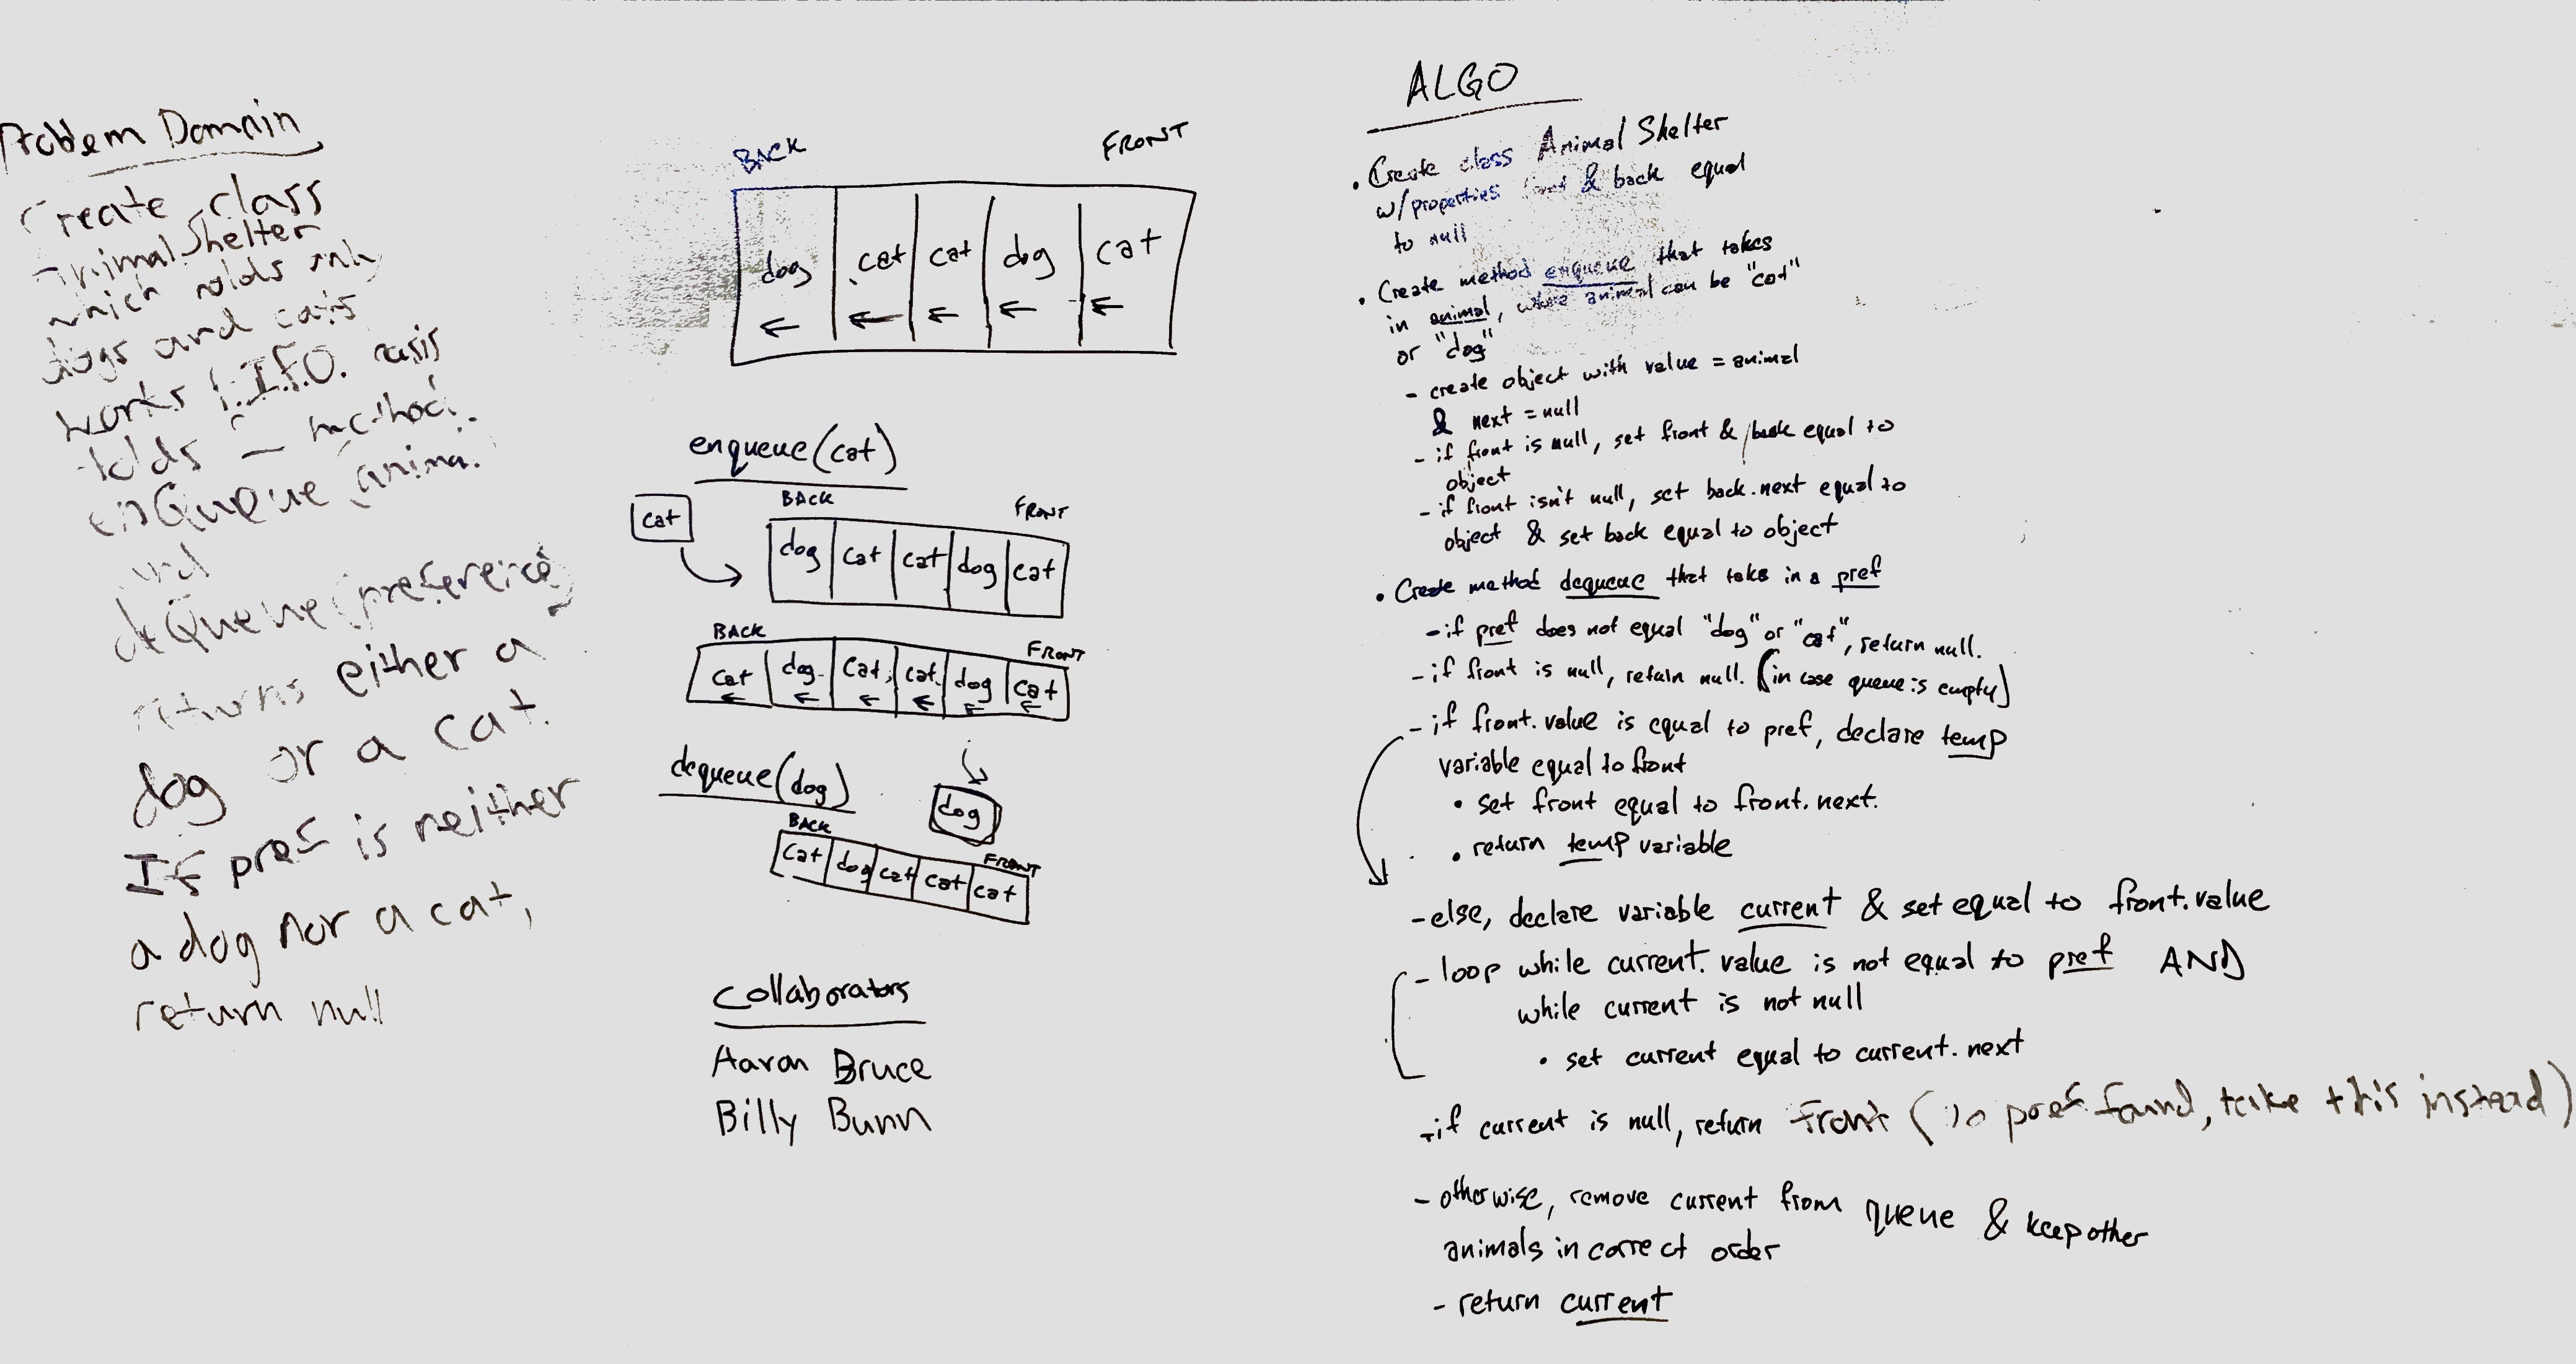 Problem Domain
Create class
AnimalShelter
which holds only
dogs and cats
works F.I.F.O. basis
method
enQueue (animal
and
deQueue (preference)
returns either a
dog or a cat.
If pref is neither
a dog nor a cat,
return null
BACK FRONT
dog cat cat dog cat
enqueue(cat)
cat
BACK FRONT
dog cat cat dog cat
BACK FRONT
cat dog cat cat dog cat
dequeue(dog)
dog
BACK FRONT
cat dog cat cat cat
Collaborators
Aaron Bruce
Billy Bunn
ALGO
• Create class Animal Shelter
w/properties front & back equal
to null
• Create method enqueue that takes
in animal, where animal can be "cat"
or "dog"
- create object with value = animal
& next = null
- if front is null, set front & back equal to
object
- if front isn't null, set back.next equal to
object & set back equal to object
• Create method dequeue that take in a pref
- if pref does not equal "dog" or "cat", return null.
- if front is null, return null. (in case queue is empty)
- if front.value is equal to pref, declare temp
variable equal to front
• set front equal to front.next.
• return temp variable
- else, declare variable current & set equal to front.value
- loop while current.value is not equal to pref AND
while current is not null
• set current equal to current.next
- if current is null, return front (no pref found, take this instead)
- otherwise, remove current from queue & keep other
animals in correct order
- return current